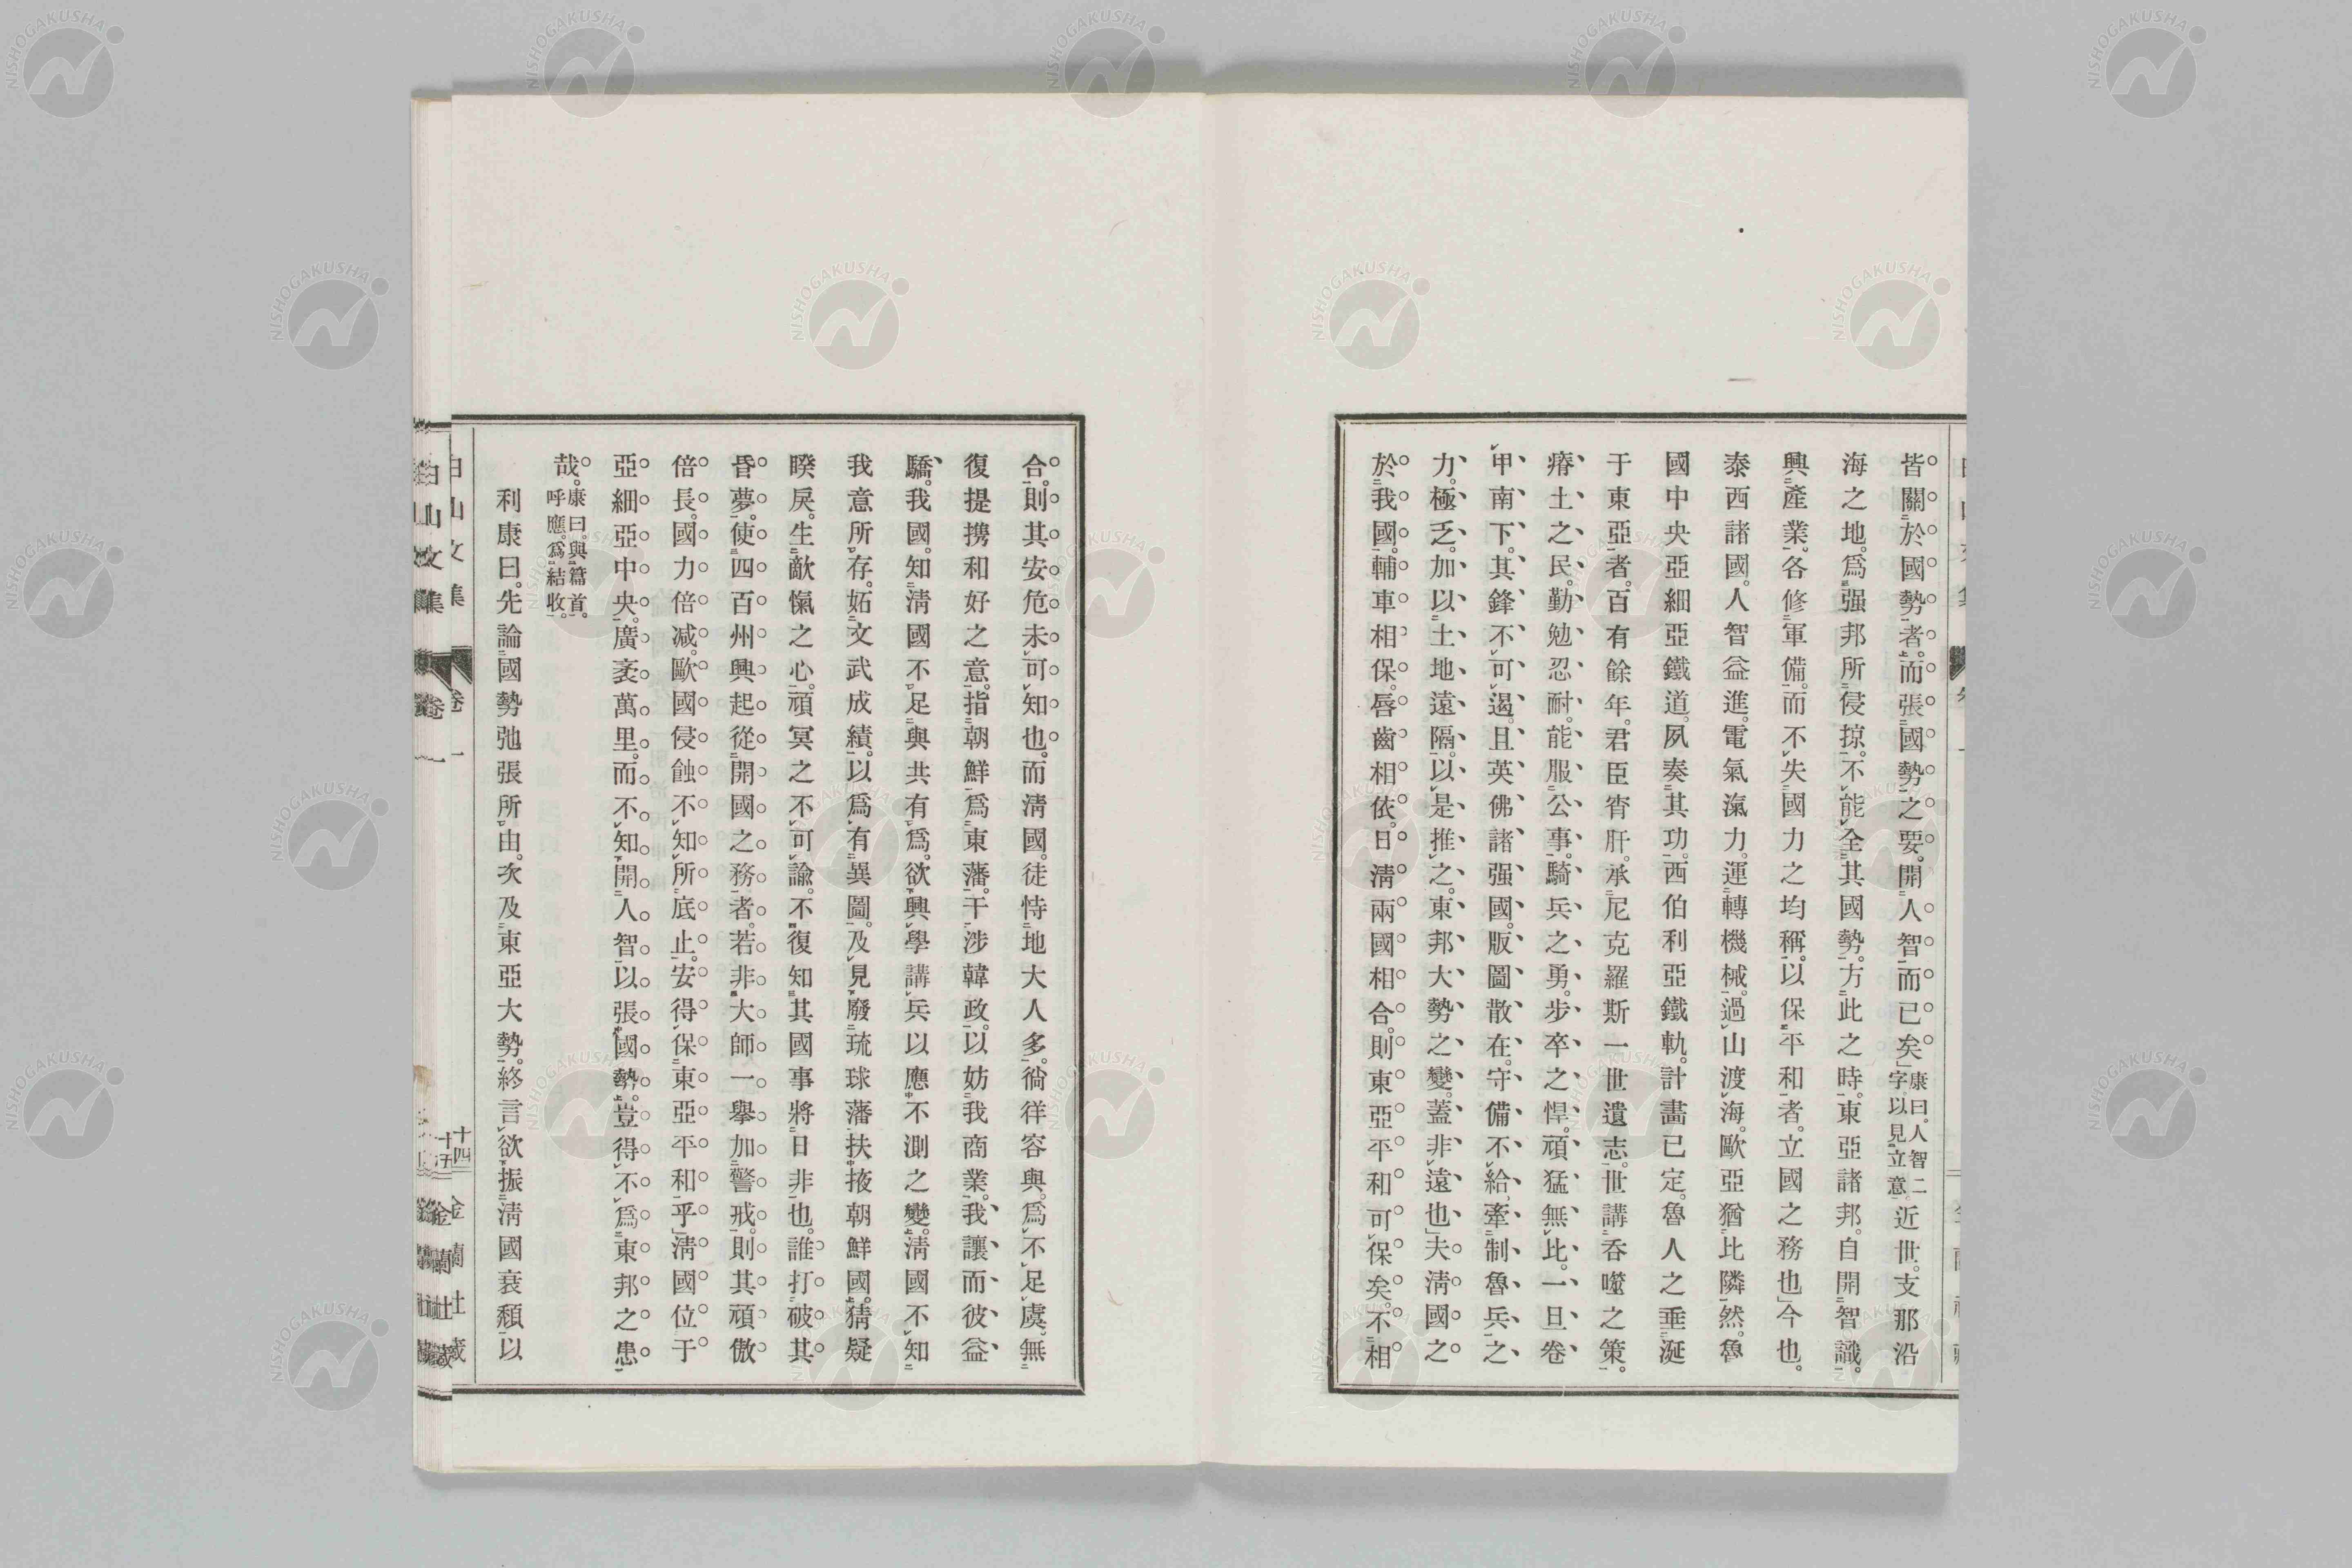 皆關於國勢者。而張國勢之要。開人智而已矣」康曰。人智二字。以見立意。近世。支那沿
海之地。爲强邦所侵掠。不能全其國勢。方此之時。東亞諸邦。自開智識。
興產業。各修軍備。而不失國力之均稱。以保平和者。立國之務也」今也。
泰西諸國。人智益進。電氣滊力。運轉機械。過山渡海。歐亞猶比隣然。魯
國中央亞細亞鐵道。夙奏其功。西伯利亞鐵軌。計畫已定。魯人之垂涎
于東亞者。百有餘年。君臣宵肝。承尼克羅斯一世遺志。世講呑噬之策。
瘠土之民。勤勉忍耐。能服公事。騎兵之勇。步卒之悍。頑猛無比。一旦卷
甲南下。其鋒不可遏。且英佛諸强國。版圖散在。守備不給。牽制魯兵之
力。極乏。加以土地遠隔。以是推之。東邦大勢之變。蓋非遠也」夫淸國之
於我國。輔車相保。唇齒相依。日淸兩國相合。則東亞平和可保矣。不相
合。則其安危未可知也。而淸國。徒恃地大人多。徜徉容與。爲不足虞。無
復提携和好之意。指朝鮮爲東藩。干涉韓政。以妨我商業。我讓而彼益
驕。我國。知淸國不足與共有爲。欲興學講兵以應不測之變。淸國不知
我意所存。妬文武成績。以爲有異圖。及見廢琉球藩扶掖朝鮮國。猜疑
睽戾。生敵愾之心。頑冥之不可諭。不復知其國事將日非也。誰打破其
昏夢。使四百州興起從開國之務者。若非大師一擧加警戒。則其頑傲
倍長。國力倍减。歐國侵蝕不知所底止。安得保東亞平和乎」淸國位于
亞細亞中央。廣袤萬里。而不知開人智以張國勢。豈得不爲東邦之患
哉。康曰。與篇首。呼應。爲結收。
利康曰。先論國勢弛張所由。次及東亞大勢。終言欲振淸國衰頽以
白山文集
卷一
十四
金蘭社藏
NISHOGAKUSHA